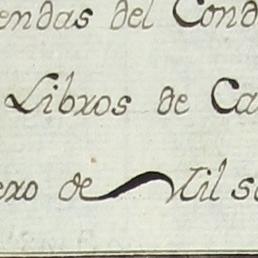 endas del Cond
Libros de Ca
ero de Mil se